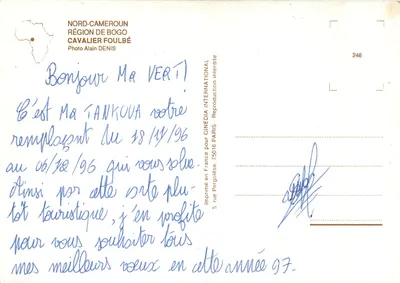 NORD-CAMEROUN
RÉGION DE BOGO
CAVALIER FOULBÉ
Photo Alain DENIS
246
Bonjour Ma VERT!
C'est Ma TANKOUA votre
remplaçant du 18/11/96
au 06/12/96 qui vous salue
Ainsi par cette carte plu-
tôt touristique, j'en profite
pour vous souhaiter tous
mes meilleurs vœux en cette année 97.
Imprimé en France pour GINÉDIA INTERNATIONAL
5, rue Pergolèse, 75016 PARIS Reproduction interdite